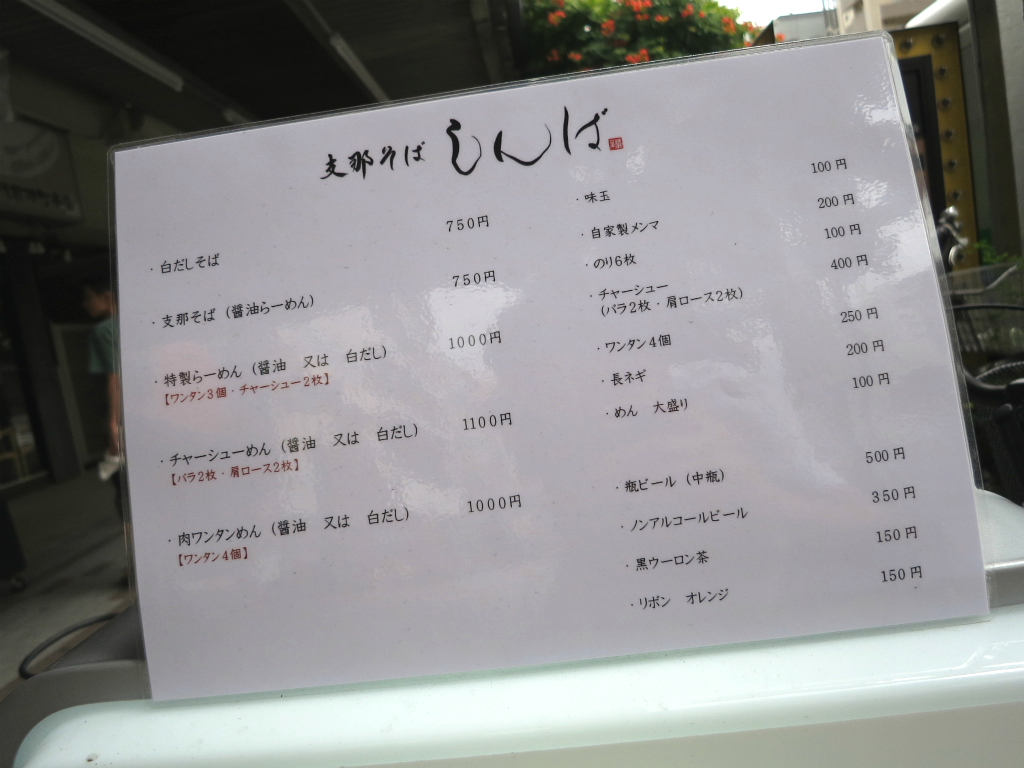 支那そば しんば
・白だしそば 750円
・支那そば（醤油らーめん） 750円
・特製らーめん（醤油 又は 白だし） 1000円
【ワンタン3個・チャーシュー2枚】
・チャーシューめん（醤油 又は 白だし） 1100円
【バラ2枚・肩ロース2枚】
・肉ワンタンめん（醤油 又は 白だし） 1000円
【ワンタン4個】
・味玉 100円
・自家製メンマ 200円
・のり6枚 100円
・チャーシュー 400円
（バラ2枚・肩ロース2枚）
・ワンタン4個 250円
・長ネギ 200円
・めん 大盛り 100円
・瓶ビール（中瓶） 500円
・ノンアルコールビール 350円
・黒ウーロン茶 150円
・リボン オレンジ 150円